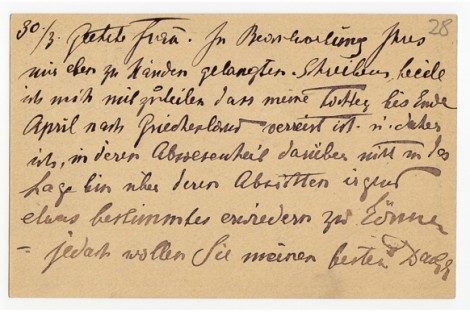 30./3. Geehrte Frau. In Beantwortung Ihres 28
mir eben zu Händen gelangten Schreibens, beeile
ich mich mitzutheilen dass meine Tochter bis Ende
April nach Griechenland verreist ist. u. daher
ich, in deren Abwesenheit darüber nicht in der
Lage bin über deren Absichten irgend
etwas bestimmtes erwiedern zu können
= jedoch wollen Sie meinen besten Dank